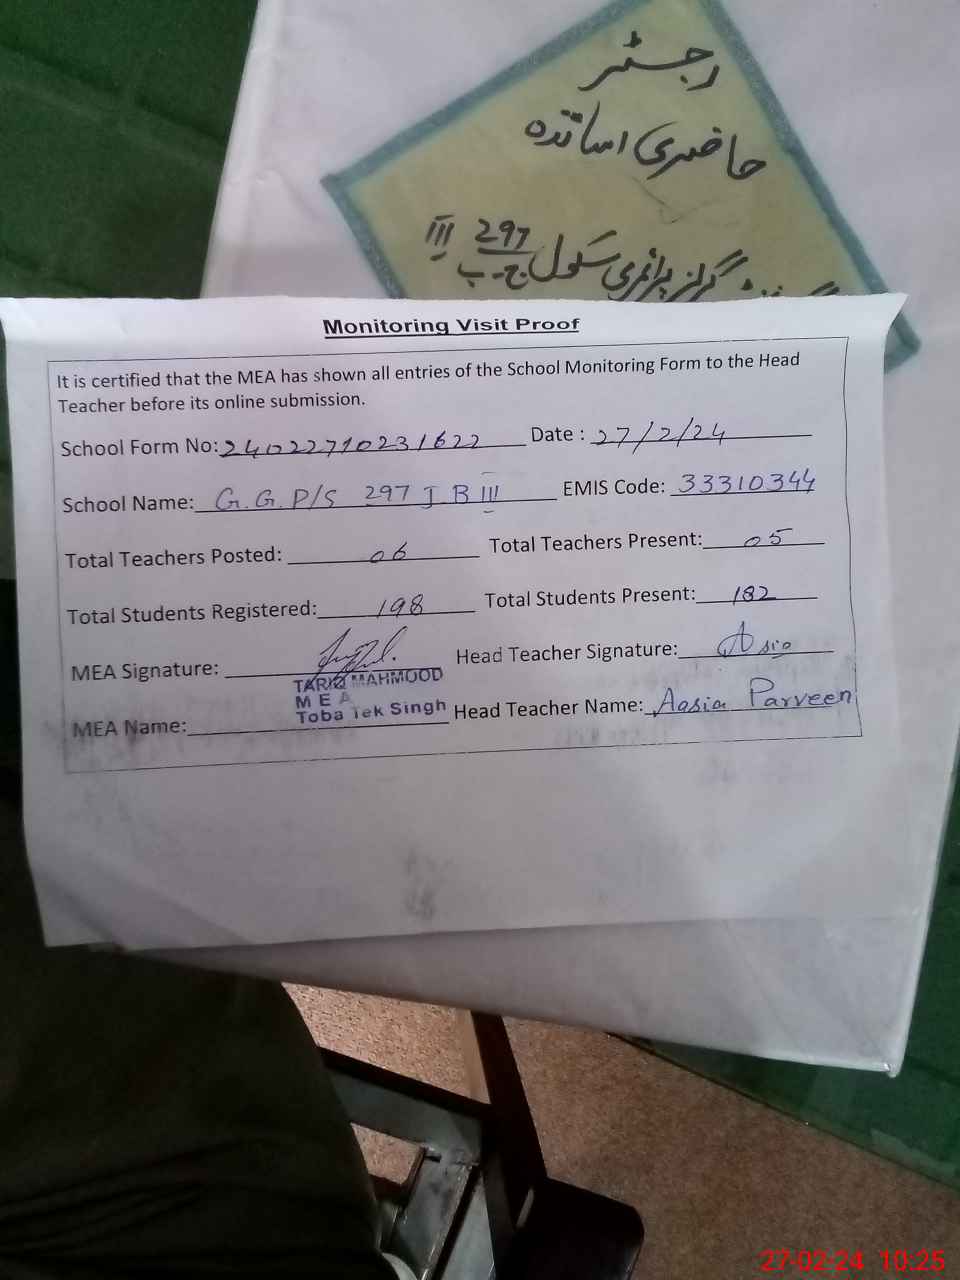 رجسٹر
حاضری اساتذہ
گرلز پرائمری سکول 297 ج۔ب III
Monitoring Visit Proof
It is certified that the MEA has shown all entries of the School Monitoring Form to the Head
Teacher before its online submission.
School Form No: 24022710231622 Date : 27/2/24
School Name: G.G.P/S 297 J B III EMIS Code: 33310344
Total Teachers Posted: 06 Total Teachers Present: 05
Total Students Registered: 198 Total Students Present: 182
MEA Signature: Head Teacher Signature: Asia
TARIQ MAHMOOD
M E A
Toba Tek Singh
MEA Name: Head Teacher Name: Aasia Parveen
27-02-24 10:25